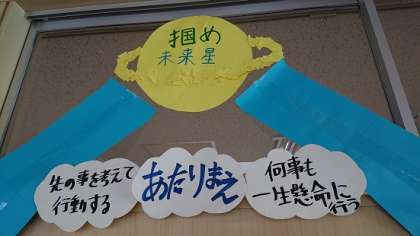 掴め
未来星
先の事を考えて
行動する
あたりまえ
何事も
一生懸命に
行う